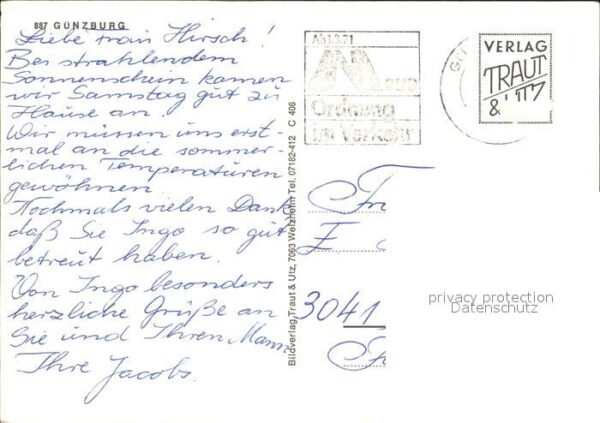 887 GÜNZBURG
Liebe Frau Hirsch!
Bei strahlendem
Sonnenschein kamen
wir Samstag gut zu
Hause an.
Wir müssen uns erst-
mal an die sommer-
lichen Temperaturen
gewöhnen.
Nochmals vielen Dank,
daß Sie Ingo so gut
betreut haben.
Von Ingo besonders
herzliche Grüße an
Sie und Ihren Mann
Ihre Jacobs.
Bildverlag Traut & Utz, 7063 Welzheim Tel. 07182-412 C 406
Ab 1.3.71
Neue
Ordnung
im Verkehr
VERLAG
TRAUT
& UTZ
Fr
3041
privacy protection
Datenschutz